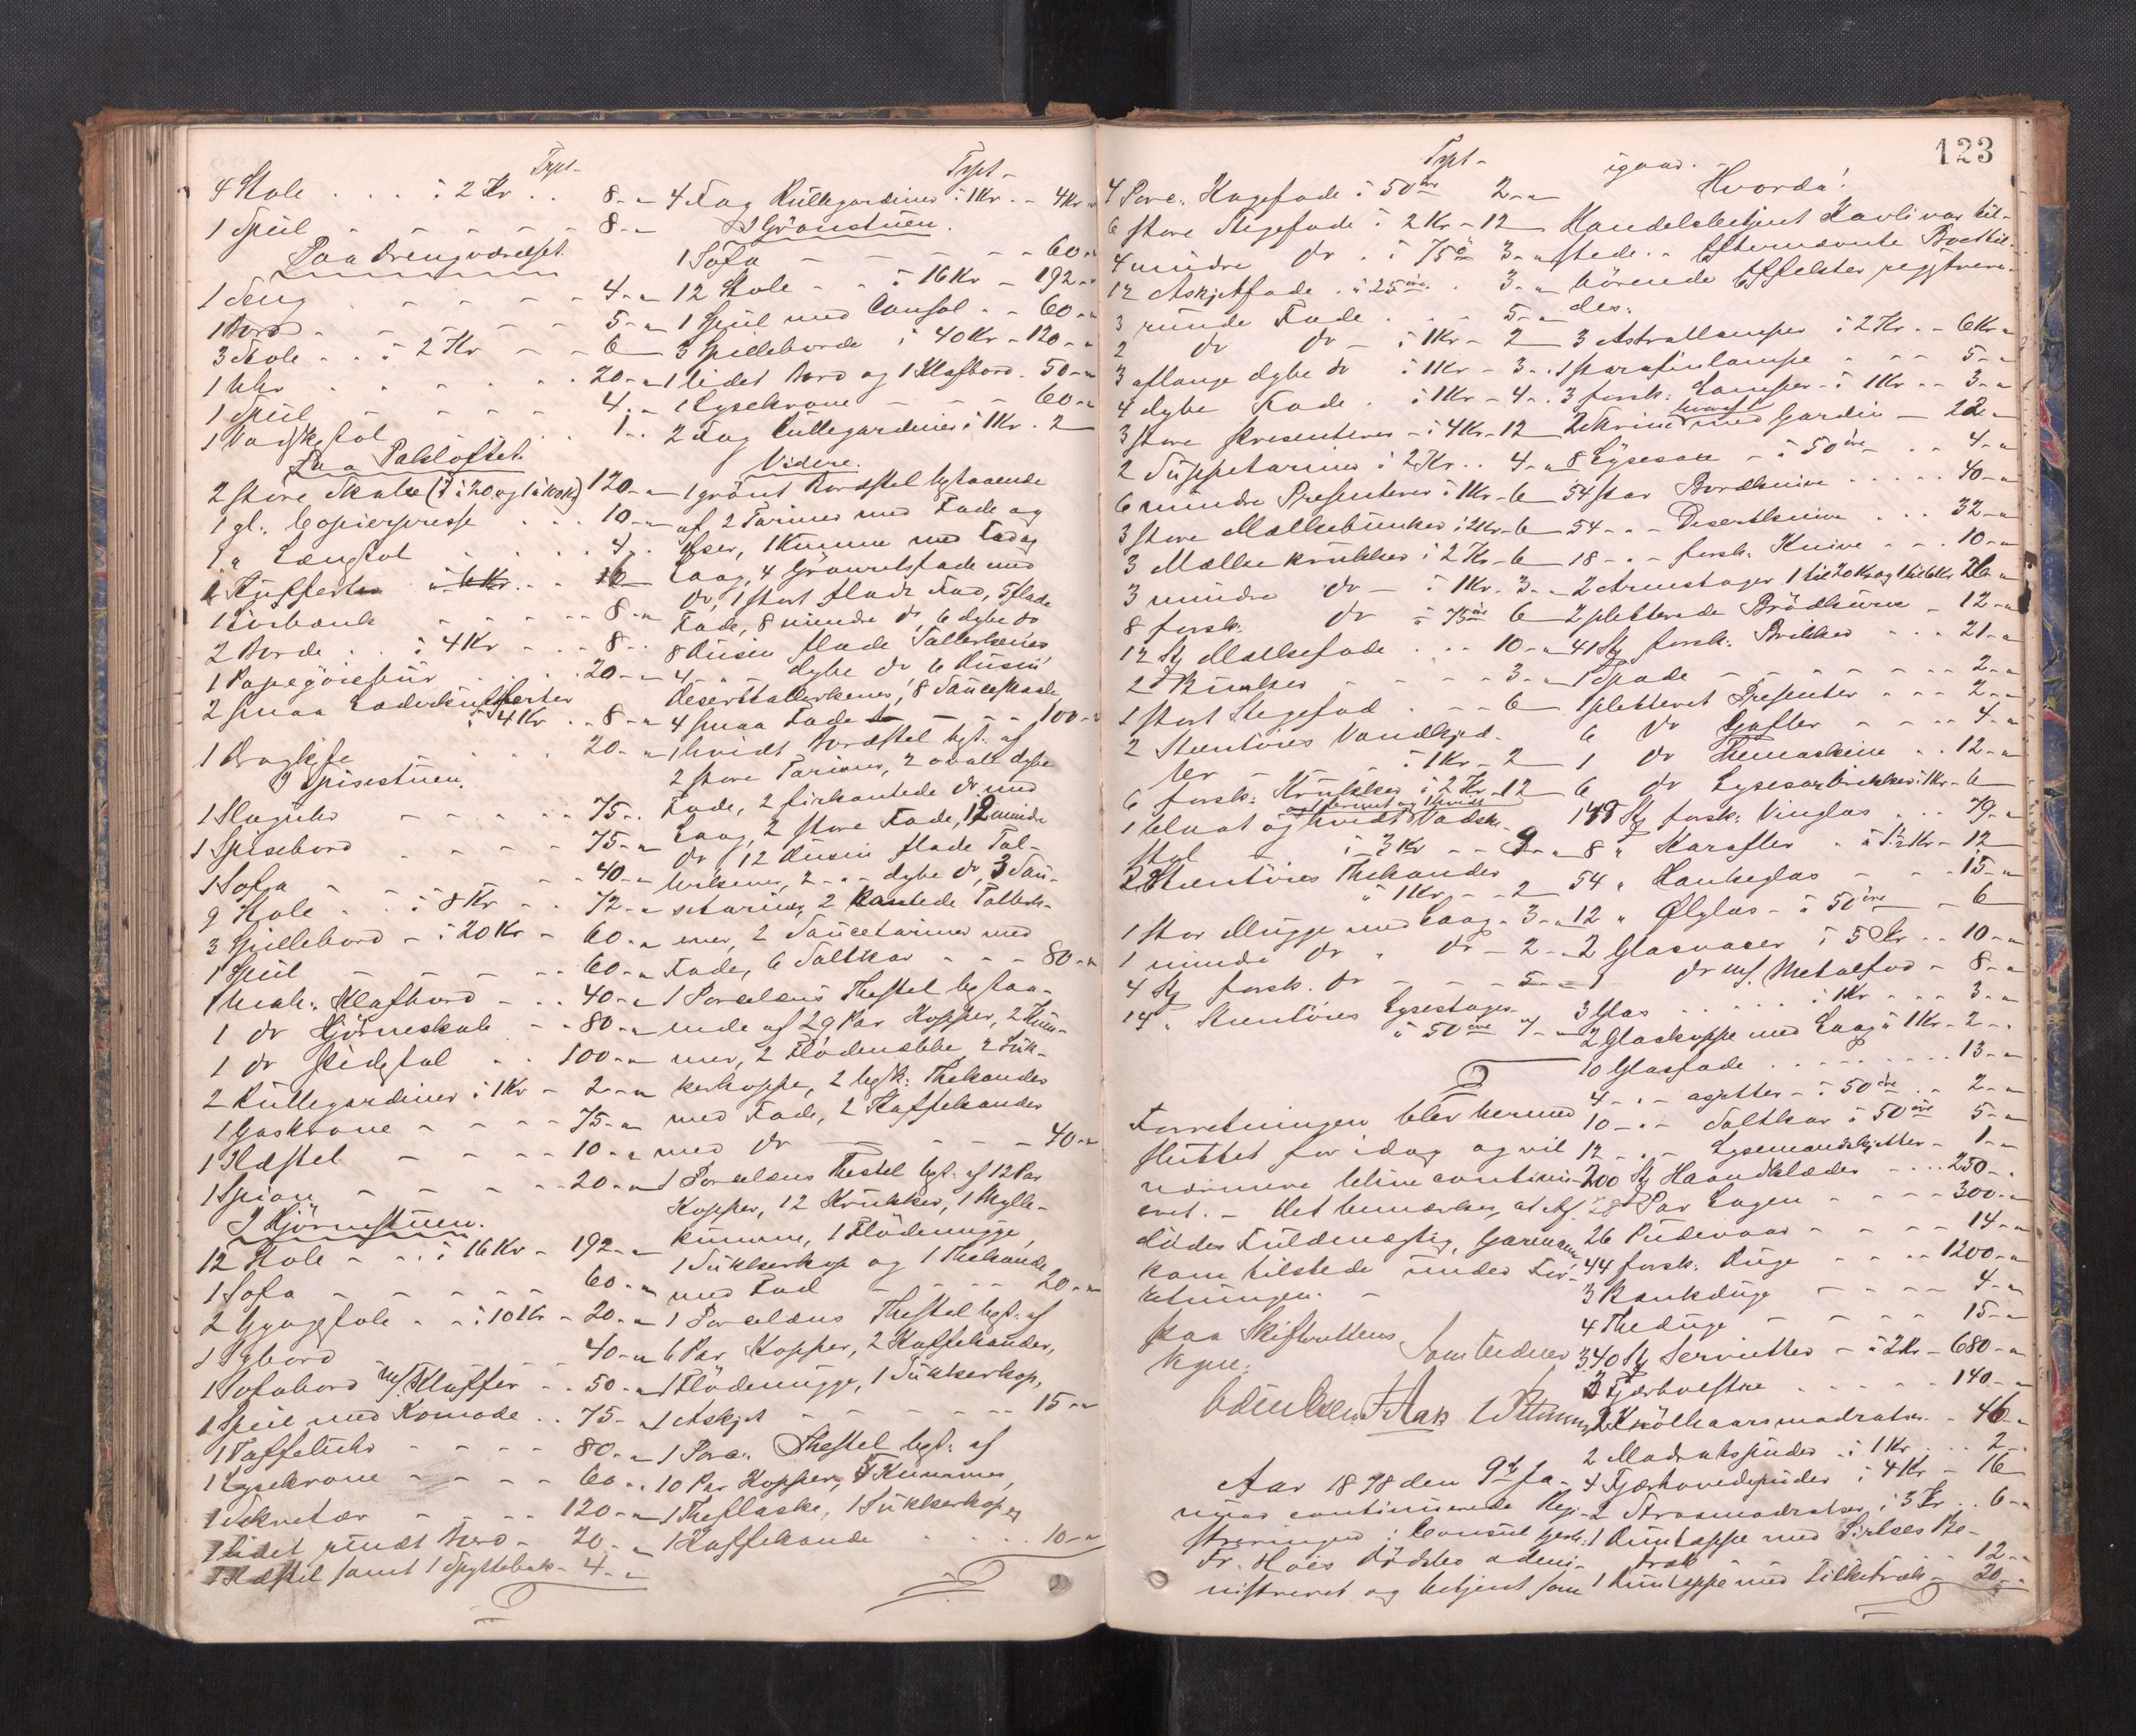 Tryt-
4 Stole . . . à 2 Kr . . 8-"
1 Speil - - - - - 8-"
Paa Drengeværelset.
1 Seng - - - - - 4-"
1 Bord - - - - - 5-"
3 Stole - . à 2 Kr - - 6
1 Uhr . . . . . 20-"
1 Speil - - - - 4-"
1 Vadskestol . . 1-"
Paa Pakloftet.
2 store Skabe 120-"
1 gl. Copierpresse . . . 10-"
1 " Lænestol . . . . 4-"
1 Kuffert
8-"
2 Borde . . à 4 Kr - - - 8-"
1 Papegöiebuur . . . . 20-"
2 smaa
à 4 Kr . . 8-"
1 Dragkiste . . . . 20-"
I Spisestuen.
1 Slaguhr - - - - - 75-"
1 Spisebord . . . . 75-"
1 Sofa - - - - - 40-"
9 Stole . . à 8 Kr . . 72-"
3 Spillebord - à 20 Kr - 60-"
1 Speil - - - - - 60-"
1 mah. Klafbord - . . 40-"
1 do Hjörneskab - - 80-"
1 do Skidstol . . 100-"
2 Rullegardiner à 1 Kr - 2-"
1 Gaskrone - - - - 75-"
1 Ildstel - - - - 10-"
1 Spion - - - - - 20-"
I Hjörnestuen.
12 Stole - - à 16 Kr - 192-"
1 Sofa - - - - - 60-"
2 Gyngestole - - à 10 Kr - 20-"
1 Sybord 40-"
1 Sofabord m/ Klaffer - . 50-"
1 Speil med Komode . . 75-"
1 Taffeluhr - - - - 80-"
1 Lysekrone - - - - 60-"
1 Sekretær - - - - 120-"
1 lidet rundt Bord - 20-"
1 Ildstel samt 1 Spyttebak - 4-"
Tryt-
4 Fag Rullegardiner à 1 Kr . - 4 Kr
I Grönstuen.
1 Sofa - - - - - 60-"
12 Stole - - à 16 Kr - 192-"
1 Speil med Consol - - 60-"
3 Spilleborde à 40 Kr - 120-"
1 lidet Bord og 1 Klafbord - 50-"
1 Lysekrone - - - 60-"
2 Fag Rullegardiner à 1 Kr . 2
Videre.
1 grönt Bordstel bestaaende
af, 2 Tariner med Fade og
1 Kumme med Fad og
Laag, 4 Grönnetsfade med
do, 1 stort fladt Fad, 5 flade
Fade, 8 mindre do, 6 dybe do
8 Dusin flade Tallerkener,
4 - " - dybe do 6 Dusin
Deserttallerkener, 8 Sauceskaale
4 smaa Fade - - - 100-"
1 hvidt Bordstel best. af
2 store Tariner, 2 ovale dybe
Fade, 2 firkantede do med
Laag, 2 store Fade, 12 mindre
do, 12 Dusin flade Tal-
lerkener, 2 - " - dybe do, 3 Sau-
cetariner, 2 kantede Tallerk-
ener, 2 Saucetariner med
Fade, 6 Saltkar - - - 80-"
1 Porcelæns Thestel bestaa-
ende af 29 Par Kopper, 2 Kum-
mer, 2 Flödenæbbe 2 Suk-
kerkoppe, 2 besk. Thekander
med Fade, 2 Kaffekander
med do - - - 40-"
1 Porcelæns Thestel best. af 12 Par
Kopper, 12 Krukker, 1 Skylle-
kumme, 1 Flödemugge,
1 Sukkerkop og 1 Thekande
med Fad - - - 20-"
1 Porcelæns Thestel best. af
6 Par Kopper, 2 Kaffekander,
1 Flödemugge, 1 Sukkerkop,
1 Asket - - - - - 15-"
1 Porc. Thestel best. af
10 Par Kopper, 4 Kummer,
1 Theflaske, 1 Sukkerkop og
1 Kaffekande . . . 10-"
123
Tryt-
4 Porc. Kagefade à 50 öre 2-"
6 store Stegefade à 2 Kr - 12
4 mindre do . à 75 ö 3-"
12 Askjetfade . à 25 öre . 3-"
3 runde Fade . . - 5-"
2 do do - à 1 Kr - 2
3 aflange dybe do à 1 Kr - 3-"
4 dybe Fade . à 1 Kr - 4-"
3 store Presenterer - à 4 Kr - 12
2 Suppetariner à 2 Kr . . 4-"
6 mindre Presenterer à 1 Kr - 6
3 store Melkebunker à 2 Kr - 6
3 Melkekrukker à 2 Kr - 6
3 mindre do - à 1 Kr . 3-"
8 forsk. do à 75 öre 6
12 St. Melkefade . . . 10-"
2 Bunker - - - - 3-"
1 stort Stegefad . . - 6
2 Steentöies Vandkjed-
ler - - - à 1 Kr - 2
6 forsk. Krukker à 2 Kr - 12
1 blaat og hvidt Vadske-
stel - à 3 Kr - - 9-"
2 Steentöies Thekander
à 1 Kr - - 2
1 stor Mugge med Laag - 3-"
1 mindre do " do - 2-"
4 St. forsk. do - - - 5-"
14 " Steentöies Lysestager
à 50 öre 7-"
Forretningen blev hermed
sluttet for idag og vil
nærmere blive continu-
eret. - Det bemærkes, at Af-
dödes Fuldmægtig, Garmann
kom tilstede under For-
retningen. -
Paa Skifterettens
Vegne. Som Vidner
igaar.
Hvorda!
Handelsbetjent Kavli var til-
stede. - Efternævnte Boet til-
hörende Effekter registrere-
des.
3 Astrallamper à 2 Kr . - 6 Kr
1 Parafinlampe - - - 5-"
3 forsk. Lamper - à 1 Kr - - 3-"
2 Skrin med Gardin - 22-"
8 Lysesaxe - à 50 öre . . 4-"
54 Par Bordknive . . . . . 40-"
54 - " - Desertknive . . . 32-"
18 - " - forsk. Knive - - . 10-"
2 Armstager 1 til 20 Kr og 1 til 6 Kr 26-"
2 pletterede Brödkurve - 12-"
41 St. forsk. Brikker . . . 21-"
1 Spade - - - - - - 2-"
1 pletteret Presenter - - - 2-"
6 do Gafler - - - - 4-"
1 do Themaskine . . 12-"
6 do Lysesaxbrikker à 1 Kr - 6
St. forsk. Vinglas . . . 79-"
8 " Karafler . à 1½ Kr - 12
54 " Hankeglas - - - 15-"
12 " Ølglas - à 50 öre - 6
2 Glasvaser à 5 Kr . . 10-"
1 do m/ Metalfod - 8-"
3 Glas . . . à 1 Kr - - - 3-"
2 Glaskopper med Laag à 1 Kr - 2-"
10 Glasfade . . . . . . . 13-"
4 - " - asjetter - à 50 öre . . 2-"
10 - " - Saltkar à 50 öre 5-"
12 - " - - 1-"
200 St. Haandklæder - . . 250-"
28 Par Lagen - - - - 300-"
26 Pudevaar - - - - 14-"
44 forsk. Duge - - - 1200-"
3 - - - - 4-"
4 Theduge - - - - 15-"
340 St. Servietter - à 2 Kr - 680-"
3 Fjærbolstre . . . . . 140-"
2 Krölhaarsmadratser - 46-"
2 Madratspuder - à 1 Kr . . 2-"
4 Fjærhovedpuder à 4 Kr - 16
2 Straamadratser à 3 Kr . . 6-"
1 Duntæppe med Sirtses Be-
træk - - - 12-"
1 Duntæppe med Silketræk - 20-"
Aar 1878 den 9de Ja-
nuar continueredes Regi-
streringen i Consul Gerh.
Fr. Hois Dödsbo admi-
nistreret og betjent som